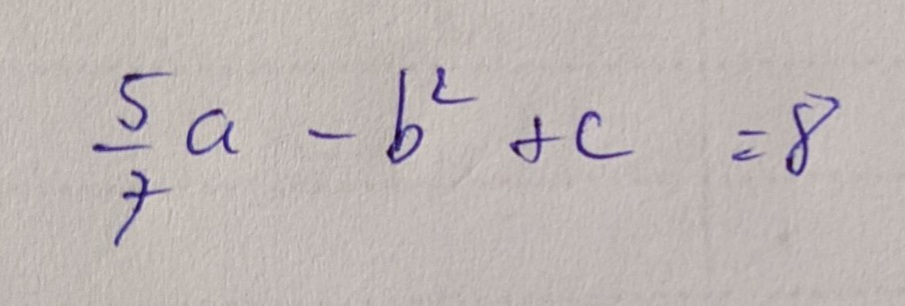 5/7 a - b² + c = 8